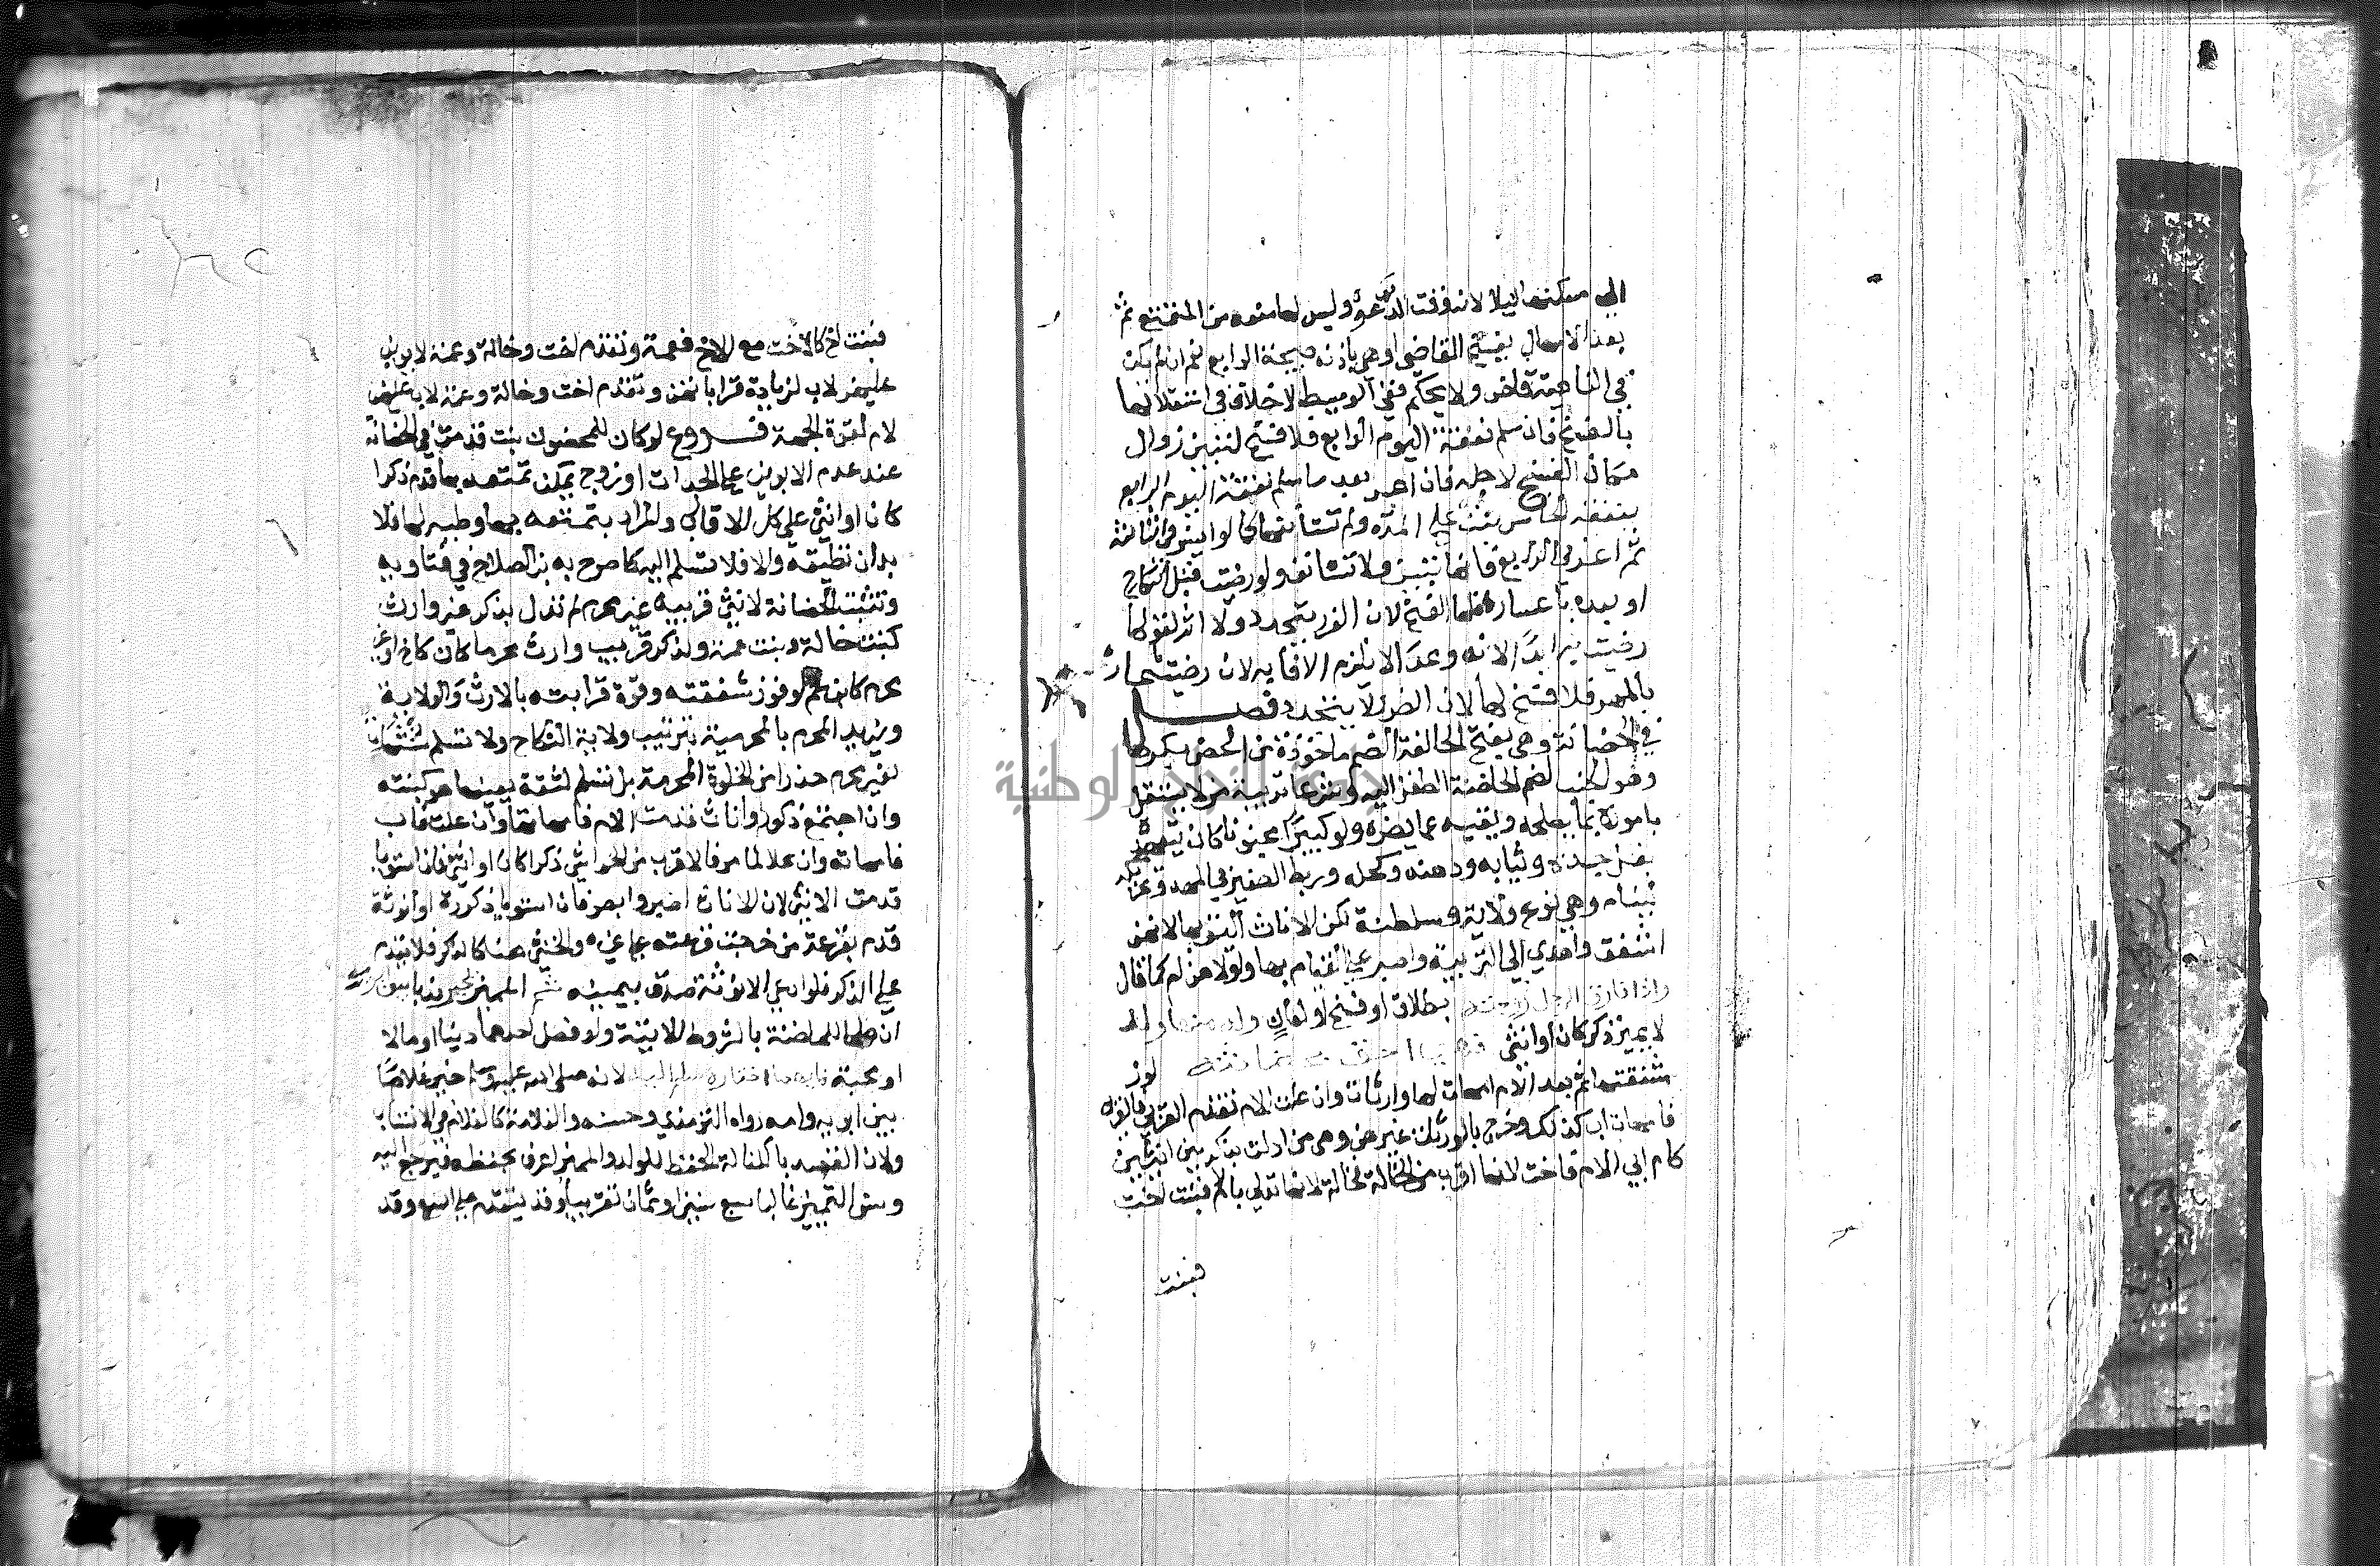 الى مسكنها ليلا لانه وقت الدعة وليس لها منعه من التمتع ثم
بعد الامهال يفسخ القاضي او هي باذنه صبيحة الرابع نعم ان لم يكن
في الناحية قاض ولا محكم ففي الوسيط لا خلاف في استقلالها
بالفسخ فان سلم نفقة اليوم الرابع فلا فسخ لتبين زوال
ما كان الفسخ لاجله فان اعسر بعد ما سلم نفقة اليوم الرابع
بنفقة الخامس بنت على المدة ولم تستأنفها كما لو ايسر في الثالث
ثم اعسر في الرابع فانها تبني ولا تستانف ولو رضيت قبل النكاح
او بعده باعساره فلها الفسخ لان الضرر يتجدد ولا اثر لقولها
رضيت به ابدا لانه وعد لا يلزم الايفا به لان رضيت باعساره
بالمهر فلا فسخ لها لان الضرر لا يتجدد فصل
في الحضانة وهي بفتح الحا لغة الضم ماخوذة من الحضن بكسرها
وهو الجنب لضم الحاضنة الطفل اليه وشرعا تربية من لا يستقل
باموره بما يصلحه ويقيه عما يضره ولو كبيرا مجنونا كان يتعهده
بغسل جسده وثيابه ودهنه وكحله وربط الصغير في المهد وتحريكه
لينام وهي نوع ولاية وسلطنة لكن الاناث اليق بها لانهن
اشفق واهدي الى التربية واصبر على القيام بها واولاهن ام كما قال
واذا فارق الرجل زوجته بطلاق او فسخ او لعان وله منها ولد
لا يميز ذكر كان او انثى فهي احق بحضانته لوفور
شفقتها ثم بعد الام امهات لها وارثات وان علت الام تقدم القربى فالقربى
فامهات اب كذلك وخرج بالوارثات غيرهن وهي من ادلت بذكر بين انثيين
كام ابي الام فاخت لانها اقرب من الخالة فخالة لانها تدلي بالام فبنت اخت
فبنت
فبنت اخ كالاخت مع الاخ فعمة وتقدم اخت وخالة وعمة لابوين
عليهن لاب لزيادة قرابتهن وتقدم اخت وخالة وعمة لاب عليهن
لام لقوة الجهة فروع لو كان للمحضون بنت قدمت في الحضانة
عند عدم الابوين على الجدات او زوج يمكن تمتعه بها قدم ذكرا
كان او انثى على كل الاقارب والمراد بتمتعه بها وطيه لها فلا
بد ان تطيقه والا فلا تسلم اليه كما صرح به بن الصلاح في فتاويه
وتثبت الحضانة لانثى قريبه غير محرم لم تدل بذكر غير وارث
كبنت خالة وبنت عمة ولذكر قريب وارث محرما كان كاخ او غير
محرم كابن عم لوفور شفقته وقوة قرابته بالارث والولاية
ويزيد المحرم بالمحرمية بترتيب ولاية النكاح ولا تسلم مشتهاة
لغير محرم حذرا من الخلوة المحرمة بل تسلم لثقة يعينها هو كبنته
وان اجتمع ذكور واناث قدمت الام فامهاتها وان علت فاب
فامهاته وان علا لما مر فالاقرب من الحواشي ذكرا كان او انثى فان استويا
قدمت الانثى لان الاناث اصبر وابصر فان استويا ذكورة او انوثة
قدم بقرعة من خرجت قرعته على غيره والخنثى هنا كالذكر فلا يقدم
على الذكر فلو ادعى الانوثة صدق بيمينه ثم المميز يخير بين ابويه
ان صلحا للحضانة بالشروط الاتية ولو فضل احدهما دينا او مالا
او محبة فايهما اختاره سلم اليه لانه صلى الله عليه وسلم خير غلاما
بين ابيه وامه رواه الترمذي وحسنه والغلامة كالغلام في الانتساب
ولان القصد بالكفالة الحفظ للولد والمميز اعرف بحفظه فيرجع اليه
وسن التمييز غالبا سبع سنين او ثمان تقريبا وقد يتقدم على السبع وقد